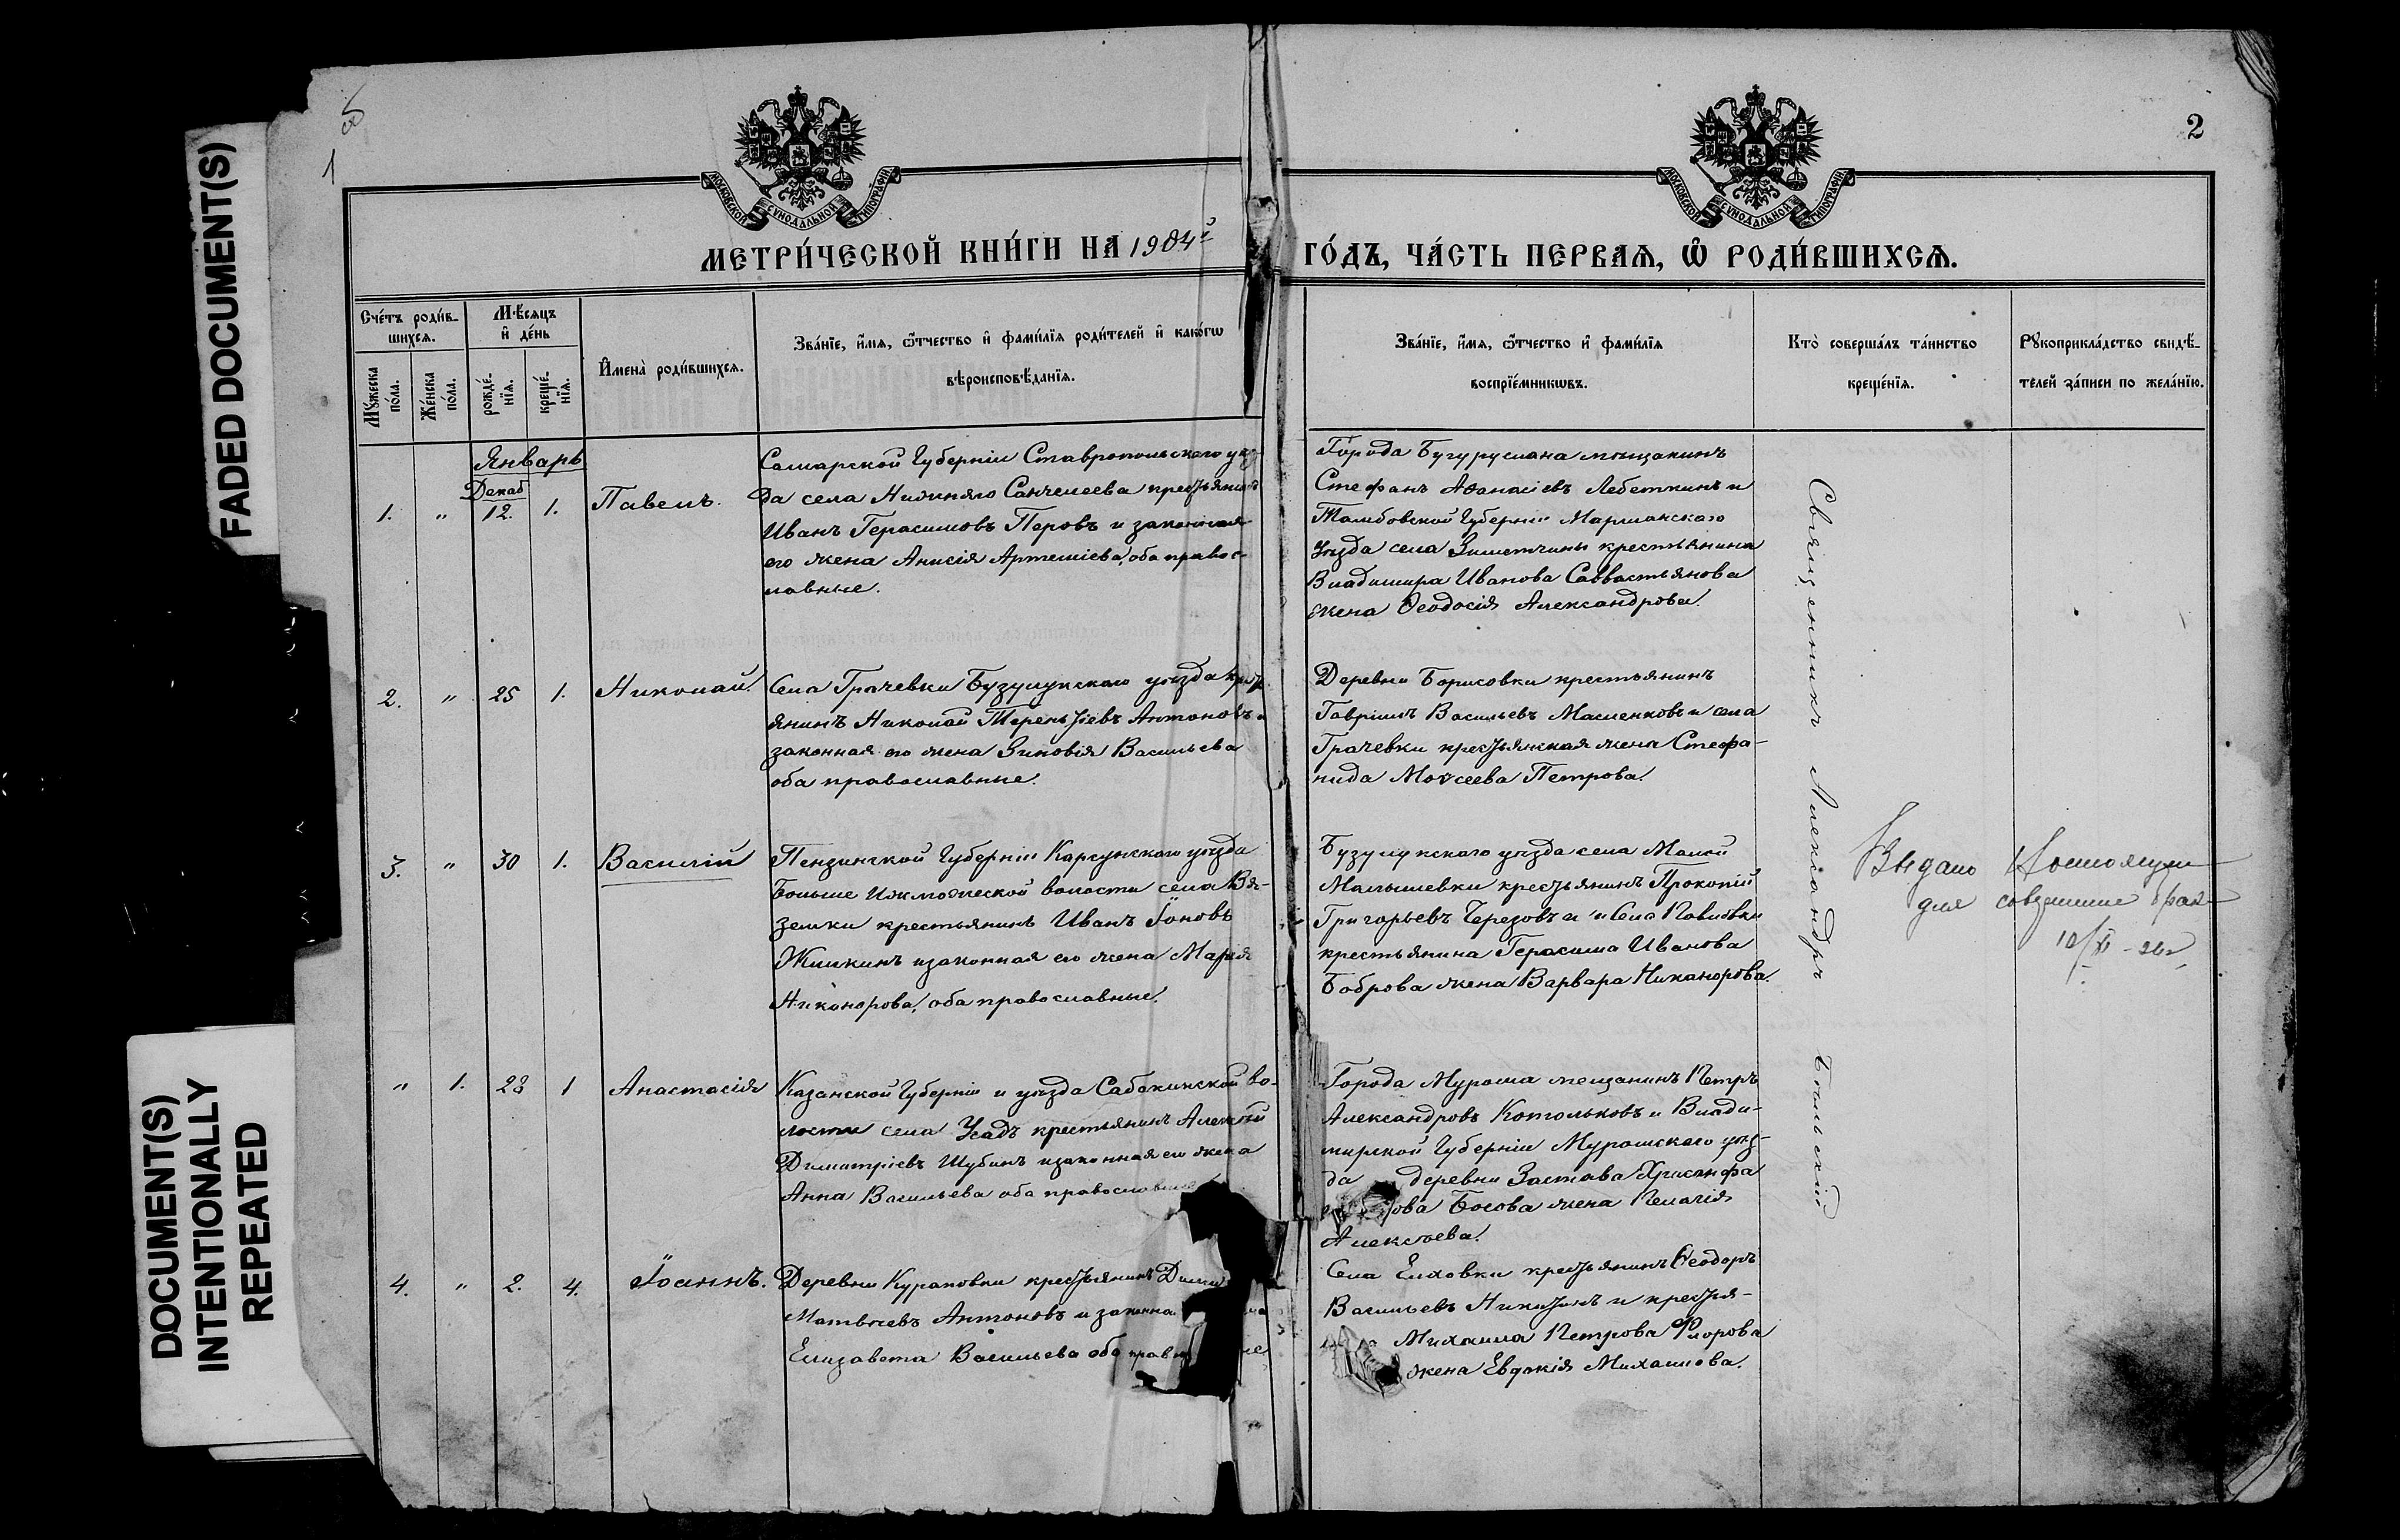 FADED DOCUMENT(S)
DOCUMENT(S)
INTENTIONALLY
REPEATED
1
2
МОСКОВСКОЙ СѴНОДАЛЬНОЙ ТИПОГРАФІИ
МОСКОВСКОЙ СѴНОДАЛЬНОЙ ТИПОГРАФІИ
МЕТРИ́ЧЕСКОЙ КНИ́ГИ НА 1904й
ГО́ДЪ, ЧА́СТЬ ПЕРВАѦ, Ѽ РОДИ́ВШИХСѦ.
Сче́тъ роди́в-
шихсѧ.
Мꙋ́жеска
по́ла.
Же́нска
по́ла.
Мѣ́сѧцъ
и҆ де́нь
рожде́-
нїѧ.
креще́-
нїѧ.
И҆мена̀ роди́вшихсѧ.
Зва́нїе, и҆́мѧ, ѻ҆́тчество и҆ фами́лїѧ роди́телей и҆ како́гѡ
вѣроисповѣ́данїѧ.
Зва́нїе, и҆́мѧ, ѻ҆́тчество и҆ фами́лїѧ
воспрїе́мникѡвъ.
Кто̀ соверша́лъ та́инство
креще́нїѧ.
Рꙋкоприкла́дство свидѣ́-
телей за́писи по жела́нїю.
Январь
Декаб
1. " 12. 1. Павелъ.
Самарской Губерніи Ставропольскаго уѣз-
да села Нижняго Санчелеева крестьянинъ
Иванъ Герасимовъ Перовъ и законная
его жена Анисія Артемієва, оба правос-
лавные.
Города Бугуруслана мѣщанинъ
Стефанъ Аѳанасіевъ Лебеткинъ и
Тамбовской Губерніи Маршанскаго
Уѣзда села Земетчины крестьянина
Владимира Иванова Савватьянова
жена Ѳеодосія Александрова.
2. " 25 1. Николай.
Села Грачевки Бузулукскаго уѣзда крест
янинъ Николай Терентіевъ Антоновъ и
законная его жена Зиновія Васильева
оба православные.
Деревни Борисовки крестьянинъ
Гавріилъ Васильевъ Масленковъ и села
Грачевки крестьянская жена Стефа-
нида Моѵсеева Петрова.
3. " 30 1. Василій
Пензинской Губерніи Карсунскаго уѣзда
Больше Ижморской волости села Вя-
земки крестьянинъ Иванъ Іоновъ
Жилкинъ и законная его жена Марія
Никонорова, оба православные.
Бузулукскаго уѣзда села Малой
Малышевки крестьянинъ Прокопій
Григорьевъ Черезовъ и села Павловки
крестьянина Герасима Иванова
Боброва жена Варвара Никанорова.
" 1. 28 1 Анастасія
Казанской Губерніи и уѣзда Сабакинской во-
лости села Усадъ крестьянинъ Алексѣй
Димитріевъ Шубинъ и законная его жена
Анна Васильева оба православные
Города Мурома мещанинъ Петръ
Александровъ Котольковъ и Влади-
мирской Губерніи Муромскаго уѣз-
да деревни Застава Хрисанфа
ова Босова жена Пелагія
Алексѣева.
4. " 2. 4. Іоаннъ.
Деревни Кураповки крестьянинъ Дими
Матвѣевъ Антоновъ и законна
Елизавета Васильева оба прав
Села Елховки крестьянинъ Ѳеодоръ
Васильевъ Никитинъ и крестья-
Михаила Петрова Фролова
жена Евдокія Михаилова.
Священникъ Александръ Бѣльскій
Выдано
для совершения брак
10/XI - 26г